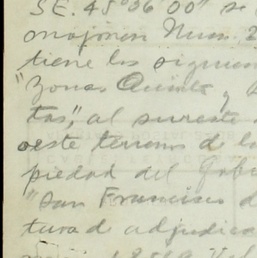 SE. 45° 06' 00" se
mojonera Num. 2
tiene los siguien
"Zonas Quinta y
tas", al sureste
oeste terrenos de la
piedad del Gobi
"San Francisco d
tura de adjudica